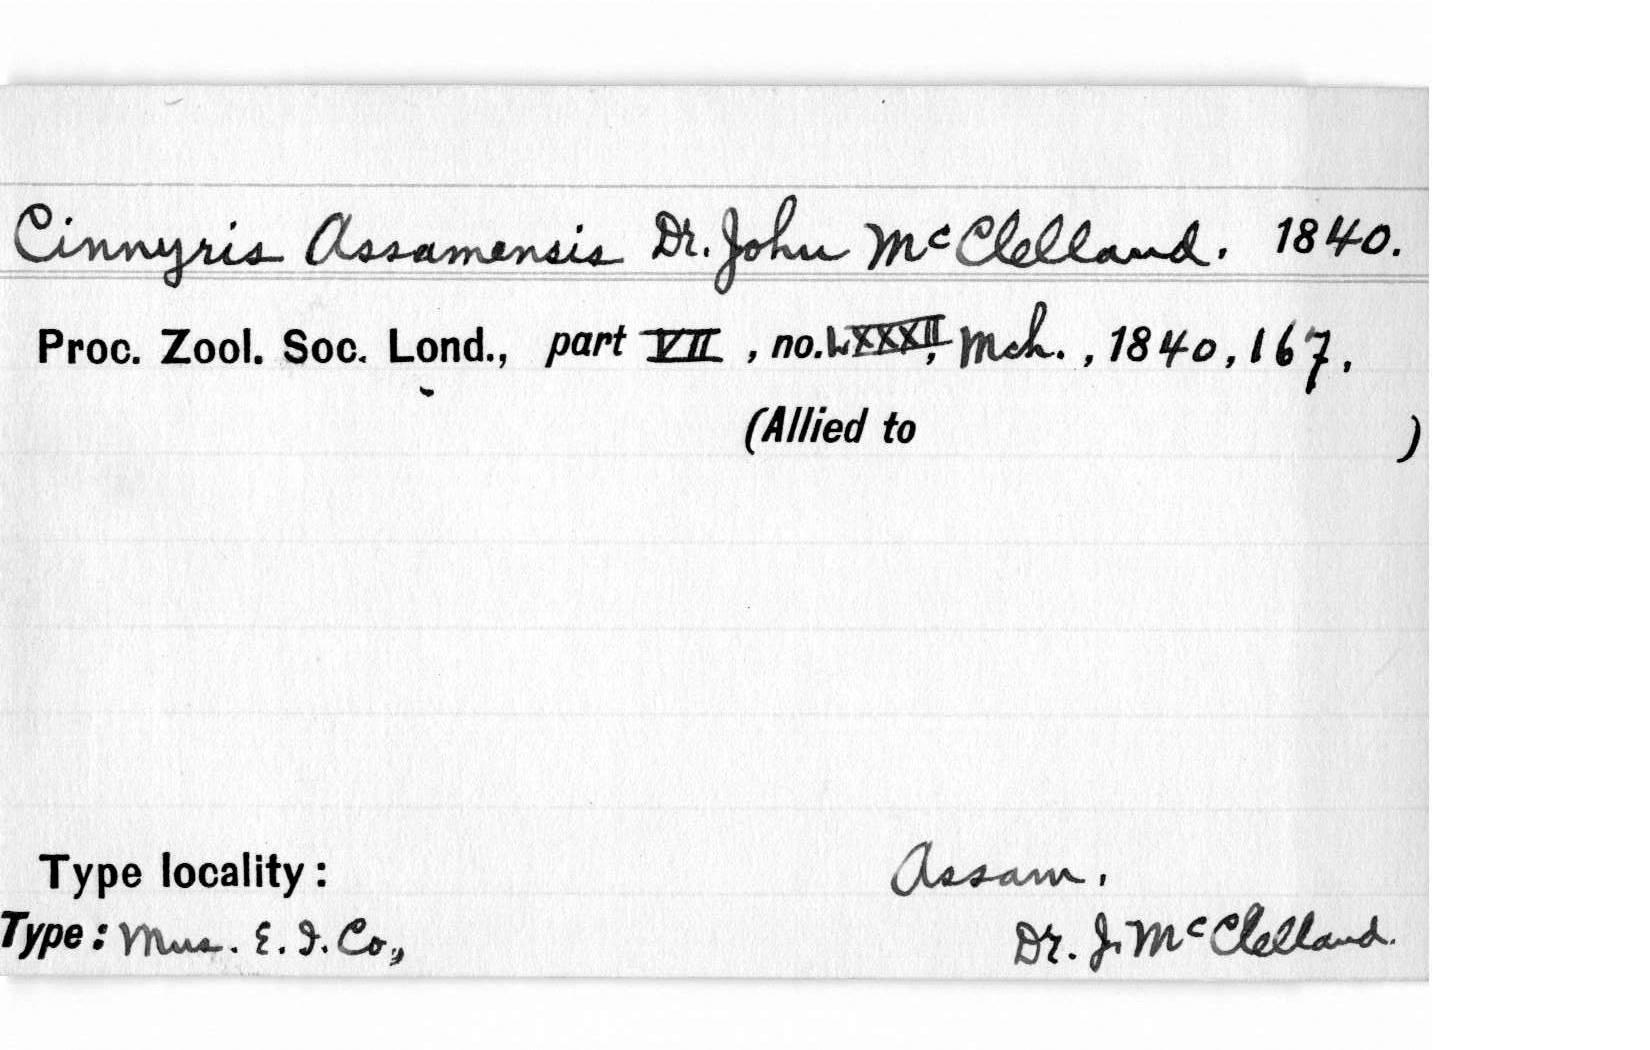 Cinnyris Assamensis Dr. John McClelland. 1840.
Proc. Zool. Soc. Lond., part VII, no. LXXXII, Mch., 1840, 167.
(Allied to )
Type locality: Assam.
Type: Mus. E. I. Co., Dr. J. McClelland.